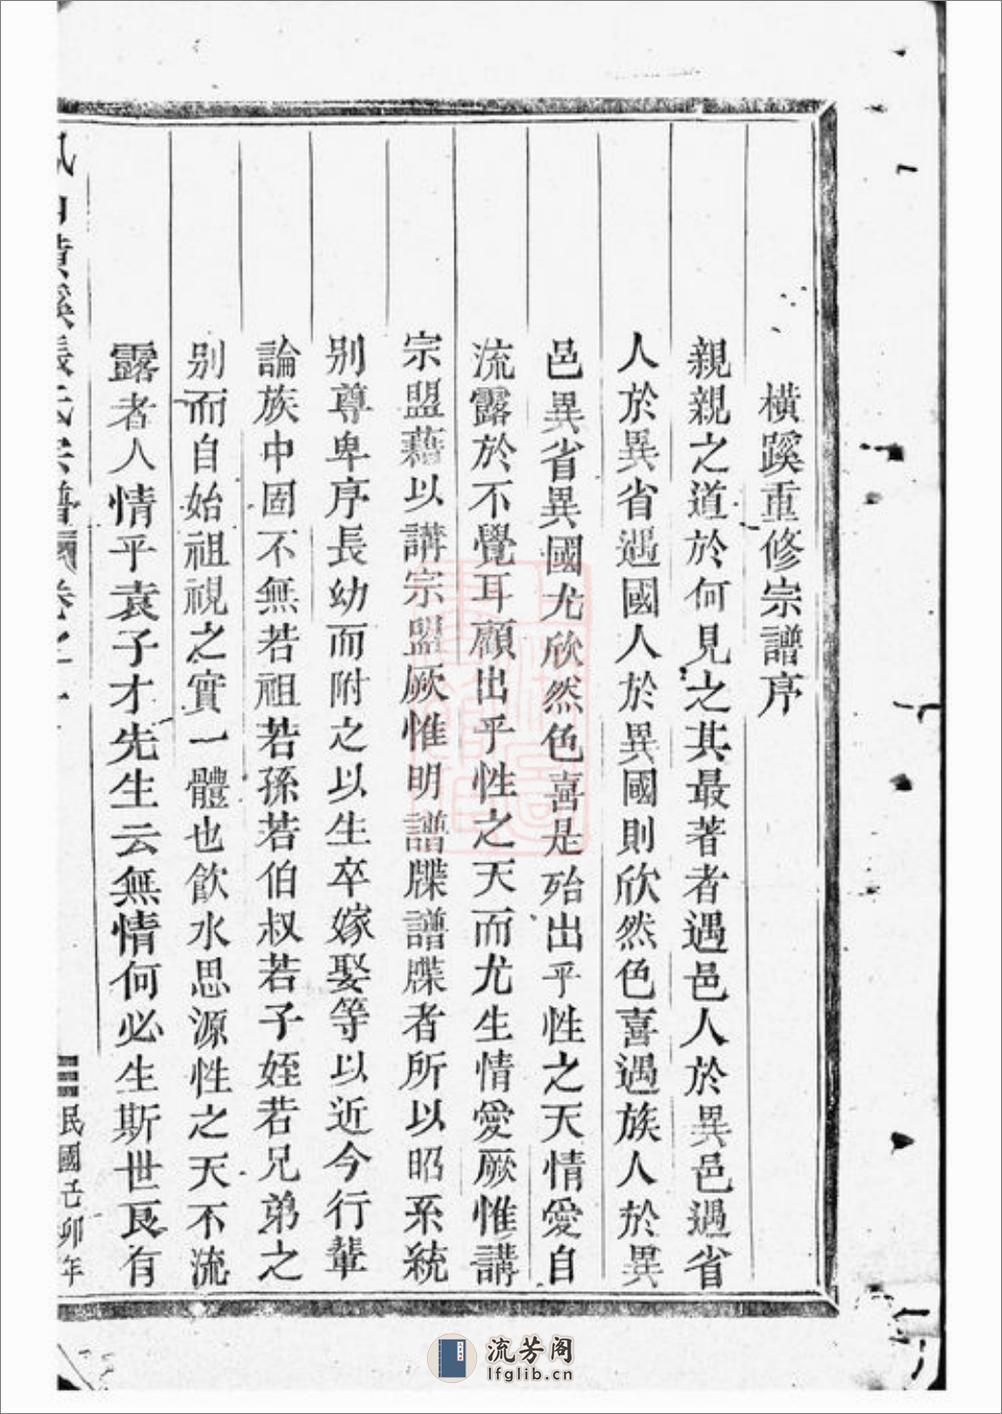 橫蹊重修宗譜序
親親之道於何見之其最著者遇邑人於異邑遇省
人於異省遇國人於異國則欣然色喜遇族人於異
邑異省異國尤欣然色喜是殆出乎性之天情愛自
流露於不覺耳顧出乎性之天而尤生情愛厥惟講
宗盟藉以講宗盟厥惟明譜牒譜牒者所以昭系統
別尊卑序長幼而附之以生卒嫁娶等以近今行輩
論族中固不無若祖若孫若伯叔若子姪若兄弟之
別而自始祖視之實一體也飲水思源性之天不流
露者人情乎袁子才先生云無情何必生斯世良有
張氏宗譜 卷之一
民國己卯年
流芳阁
lfglib.cn